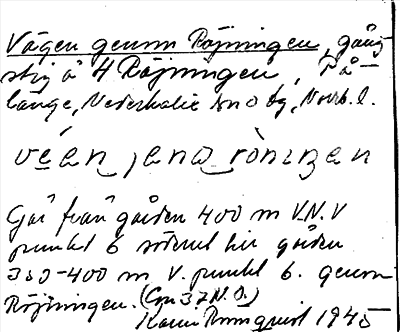 Vägen genom Röjningen, gång-
stig å 4 Röjningen, På-
länge, Nederkalix sn o tg, Norrb. l.
véa̱n, ɟenɷ rö̀nɩŋen
Går från gården 400 m V.N.V
punkt 6 söderut till gården
350-400 m V. punkt 6. genom
Röjningen. (Gm 37 N.O.)
Karin Rönnquist 1945